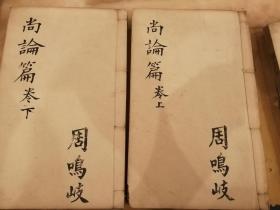 尚論篇卷上
周鳴岐
尚論篇卷下
周鳴岐